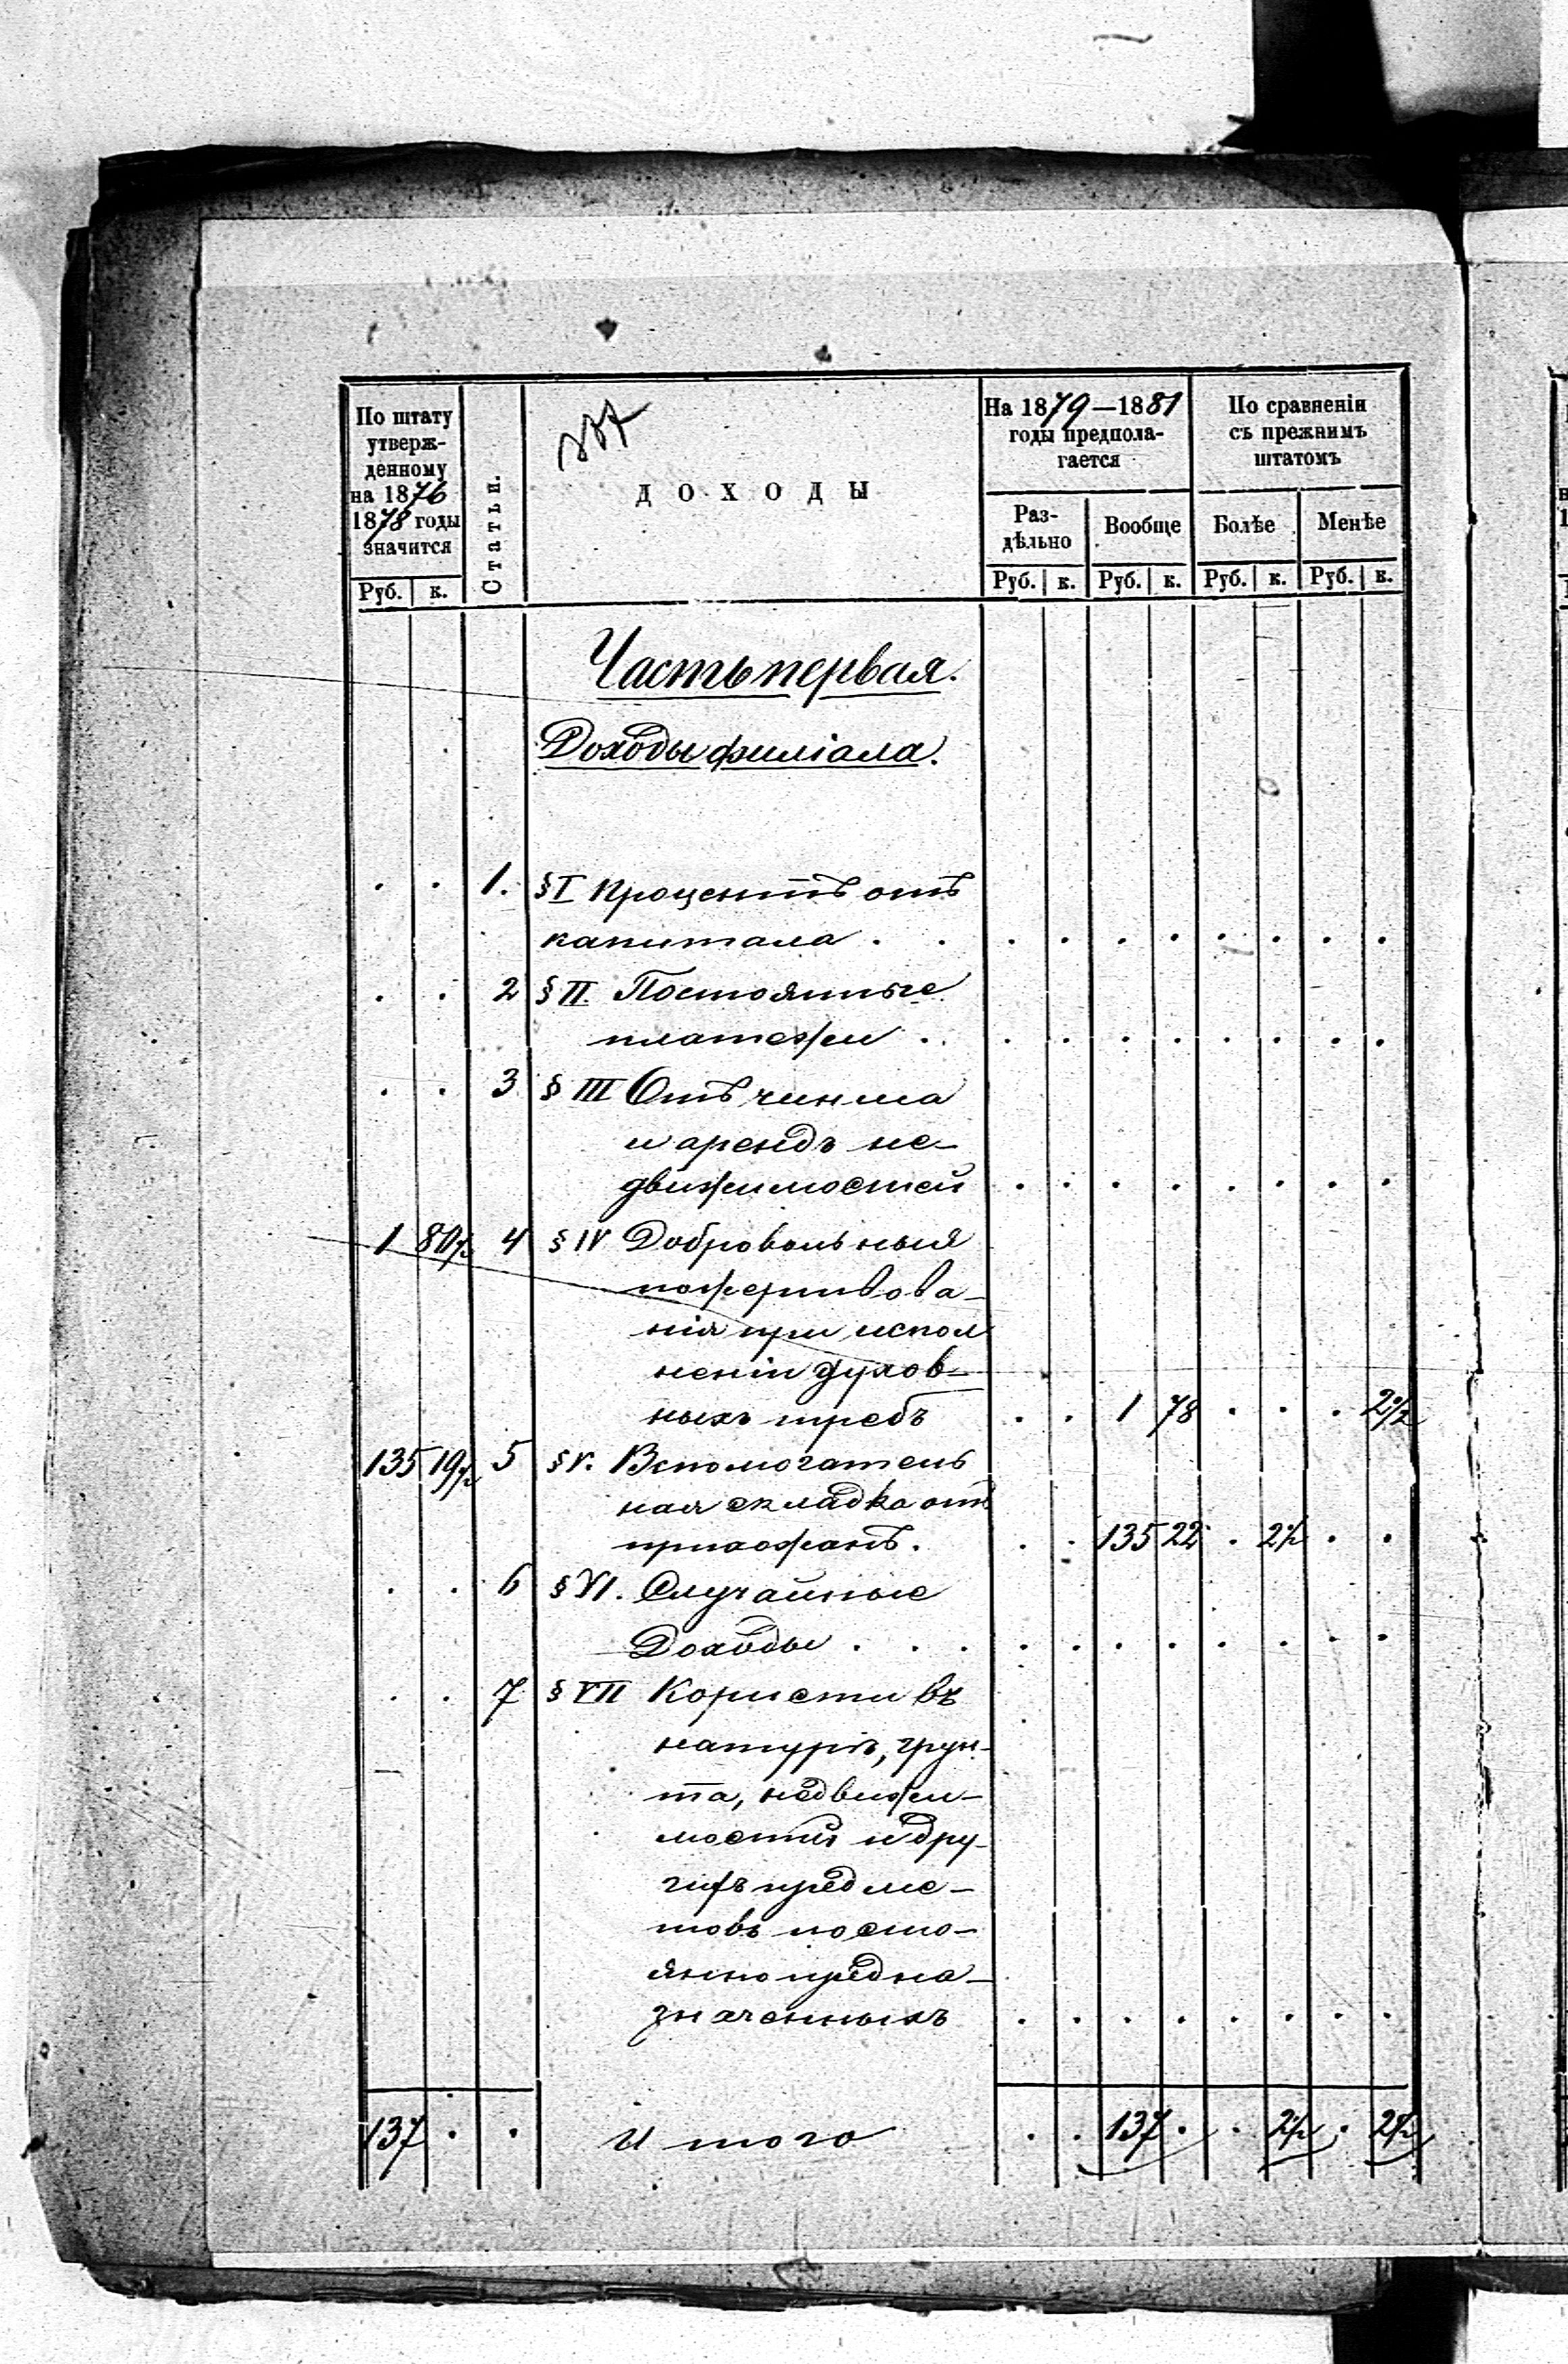 По штату
утверж-
денному
на 1876
1878 годы
значится
Руб. к.
Статьи.
ДОХОДЫ
На 1879—1881
годы предпола-
гается
Раз-
дѣльно
Руб. к.
Вообще
Руб. к.
По сравненіи
съ прежнимъ
штатомъ
Болѣе
Руб. к.
Менѣе
Руб. к.
Часть первая.
Доходы филіала.
. . 1. §I Процентъ отъ
капитала . . . . . . . . . .
. . 2 §II. Постоянные
платежи . . . . . . . . . .
. . 3 § III Отъ чинша
и арендъ не-
движимостей . . . . . . . .
1 80½ 4 § IV Добровольныя
пожертвова-
нія при испол
неніи духов-
ныхъ требъ . . 1 78 . . . 2½
135 19½ 5 §V. Вспомогатель
ная складка отъ
прихожанъ. . . 135 22 . 2½ . .
. . 6 §VI. Случайные
Доходы . . . . . . . . . . .
. . 7 § VII Користи въ
натурѣ, грун-
та, недвижи-
мостей и дру-
гихъ предме-
товъ посто-
янно предна-
значенныхъ . . . . . . . .
137 . . Итого . . 137 . . 2½ . 2½